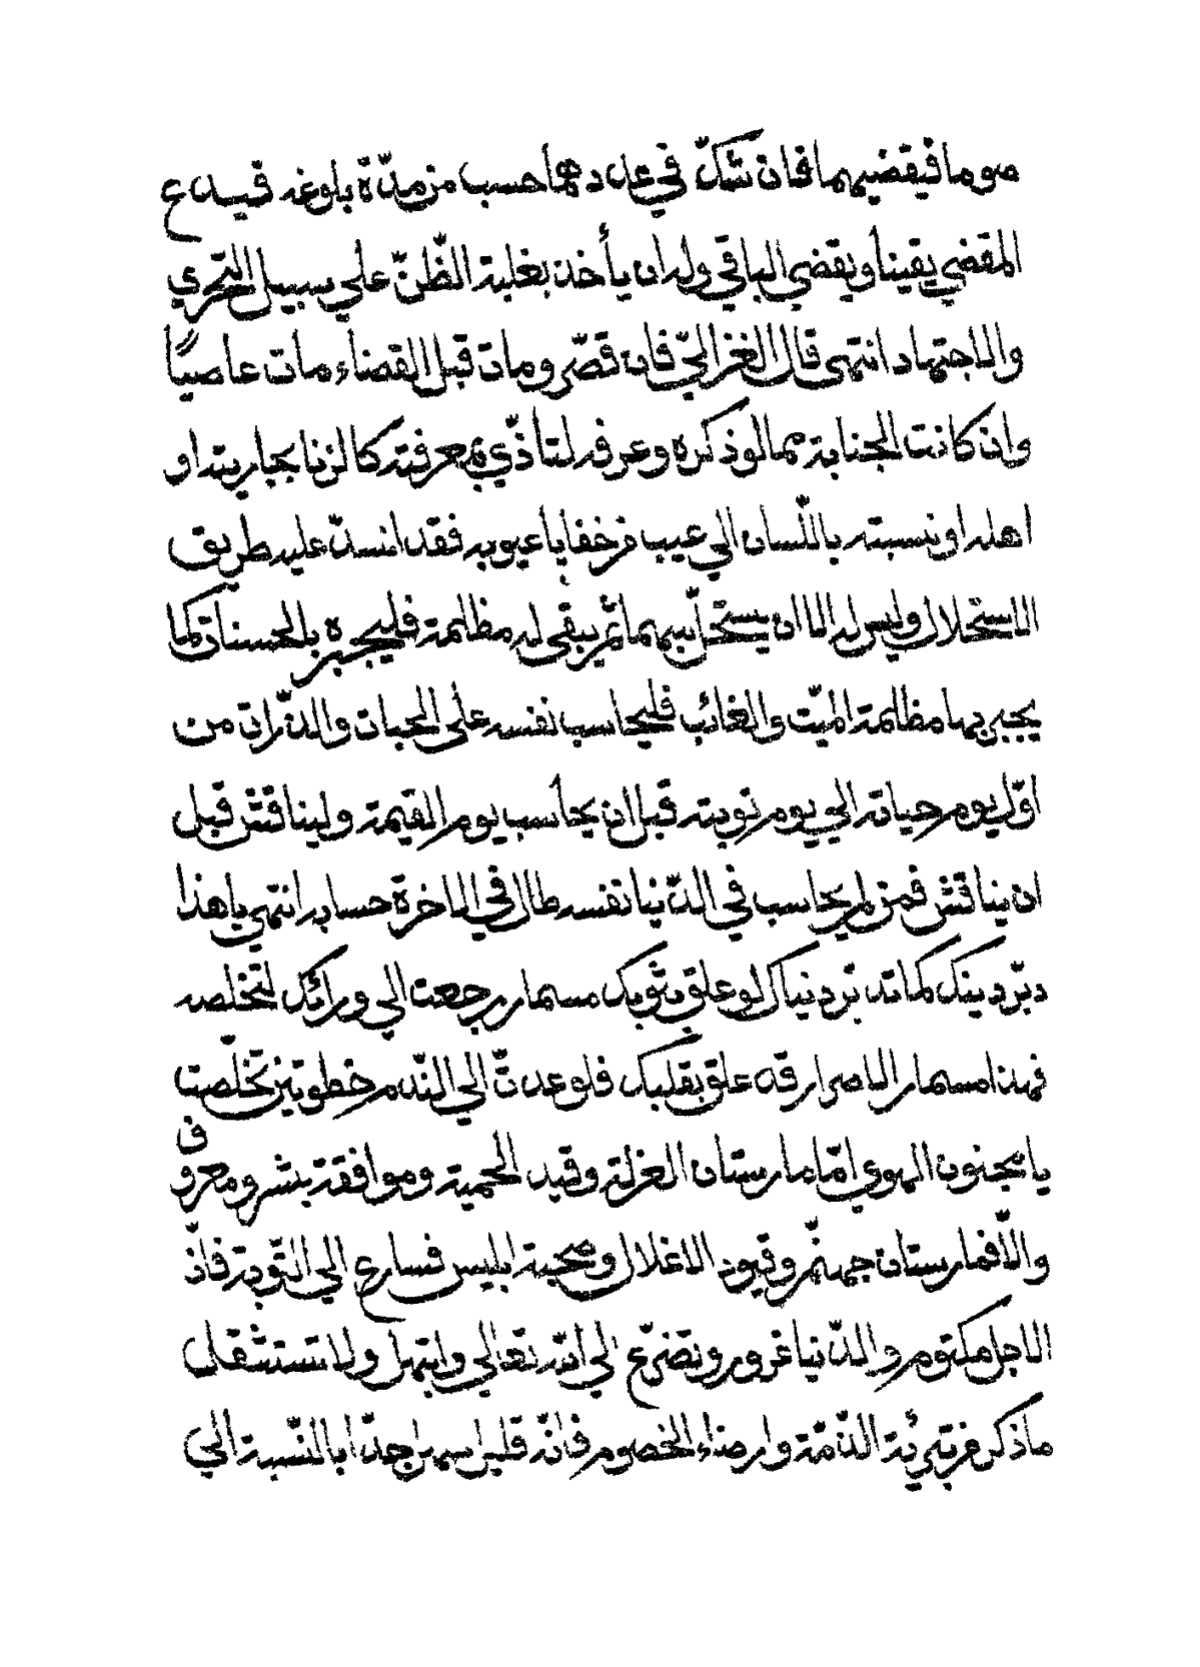 صوما فيقضيهما فان شكّ في عددهما حسب من مدّة بلوغه فيدع
المقضي يقينا ويقضي الباقي وله ان يأخذ بغلبة الظّنّ علي سبيل التحري
والاجتهاد انتهى قال الغزاليّ فان قصّر ومات قبل القضاء مات عاصيًا
وان كانت الجناية مما لو ذكره وعرفه لتأذّي بمعرفته كالزنا بجاريته او
اهله او نسبته باللّسان الي عيب من خفايا عيوبه فقد انسدّ عليه طريق
الاستحلال وليس له الا ان يستحلّ مبهما ثم يبقى له مظالمة فليجبره بالحسنات كما
يجبر بها مظالمة الميّت والغائب فليحاسب نفسه على الحبات والذّرات من
اوّل يوم حياته الي يوم توبته قبل ان يحاسب يوم القيمة وليناقش قبل
ان يناقش فمن لم يحاسب في الدّنيا نفسه طال في الاخرة حسابه انتهي يا هذا
دبّر دينك كما تدبّر دنياك لو علق بثوبك مسمار رجعت الي ورائك لتخلصه
فهذا مسمار الاصرار قد علق بقلبك فلو عدتّ الي النّدم خطوتين تخلّصت
يا مجنون الهوي امّا مارستان العزلة وقيد الحمية وموافقة بشر ومعروف
والّا فمارستان جهنّم وقيود الاغلال وصحبة ابليس فسارع الي التّوبة فانّ
الاجل مكتوم والدّنيا غرور وتضرّع الي الله تعالي وابتهل ولا تستثقل
ما ذكر من تبرئة الذّمّة وارضاء الخصوم فانّه قليل سهل جدّا بالنّسبة الي